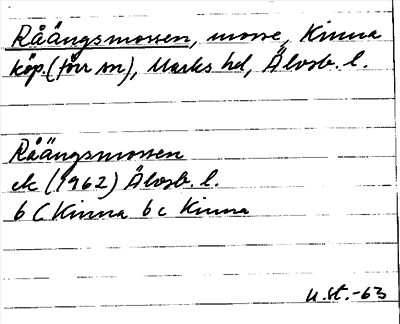 Råängsmossen, mosse, Kinna
köp. (förr sn), Marks hd, Älvsb. l.
Råängsmossen
ek (1962) Älvsb. l.
6 C Kinna 6 c Kinna
u.st.-63